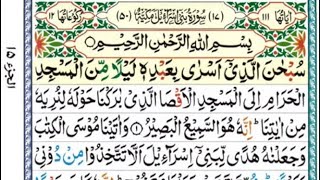 اٰیَاتُهَا ١١١ (١٧) سُوْرَةُ بَنِیْۤ اِسْرَآءِیْلَ مَكِّیَّةٌ (٥٠) رُكُوْعَاتُهَا ١٢
بِسْمِ اللّٰهِ الرَّحْمٰنِ الرَّحِیْمِ
سُبْحٰنَ الَّذِیْۤ اَسْرٰی بِعَبْدِهٖ لَیْلًا مِّنَ الْمَسْجِدِ
الْحَرَامِ اِلَی الْمَسْجِدِ الْاَقْصَا الَّذِیْ بٰرَكْنَا حَوْلَهٗ لِنُرِیَهٗ
مِنْ اٰیٰتِنَا ؕ اِنَّهٗ هُوَ السَّمِیْعُ الْبَصِیْرُ ۝١ وَاٰتَیْنَا مُوْسَی الْكِتٰبَ
وَجَعَلْنٰهُ هُدًی لِّبَنِیْۤ اِسْرَآءِیْلَ اَلَّا تَتَّخِذُوْا مِنْ دُوْنِیْ
الجزء ١٥